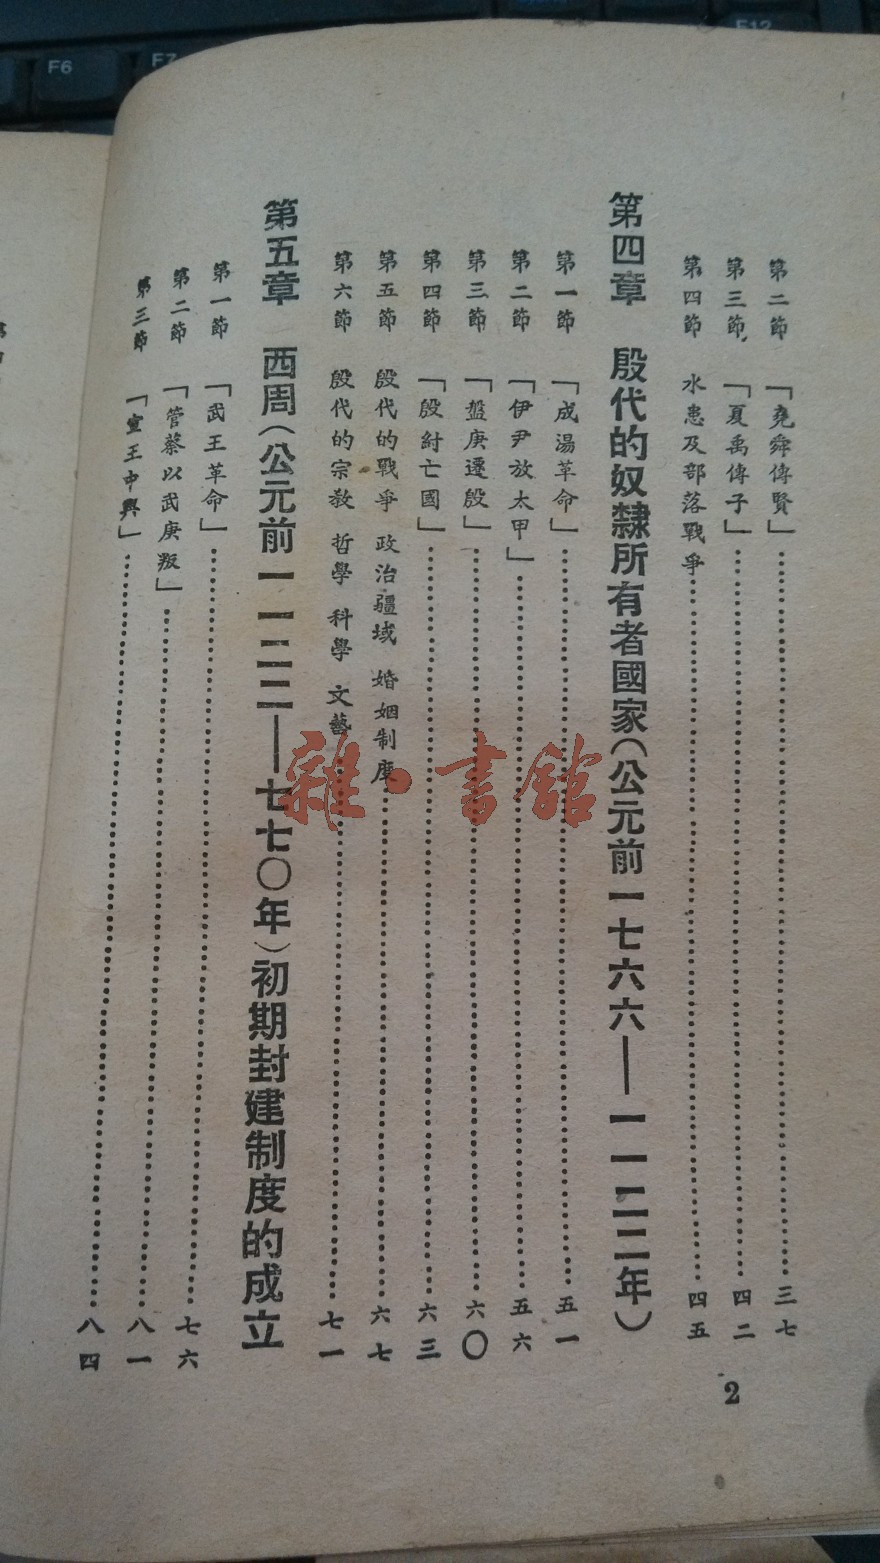 第二節 「堯舜傳賢」 三七
第三節 「夏禹傳子」 四二
第四節 水患及部落戰爭 四五
第四章 殷代的奴隸所有者國家(公元前一七六六——一一二二年)
第一節 「成湯革命」 五一
第二節 「伊尹放太甲」 五六
第三節 「盤庚遷殷」 六〇
第四節 「殷紂亡國」 六三
第五節 殷代的戰爭 政治疆域 婚姻制度 六七
第六節 殷代的宗教 哲學 科學 文藝 七一
第五章 西周(公元前一一二二——七七〇年)初期封建制度的成立
第一節 「武王革命」 七六
第二節 「管蔡以武庚叛」 八一
第三節 「宣王中興」 八四
2
雜·書館
F6
F7
F12